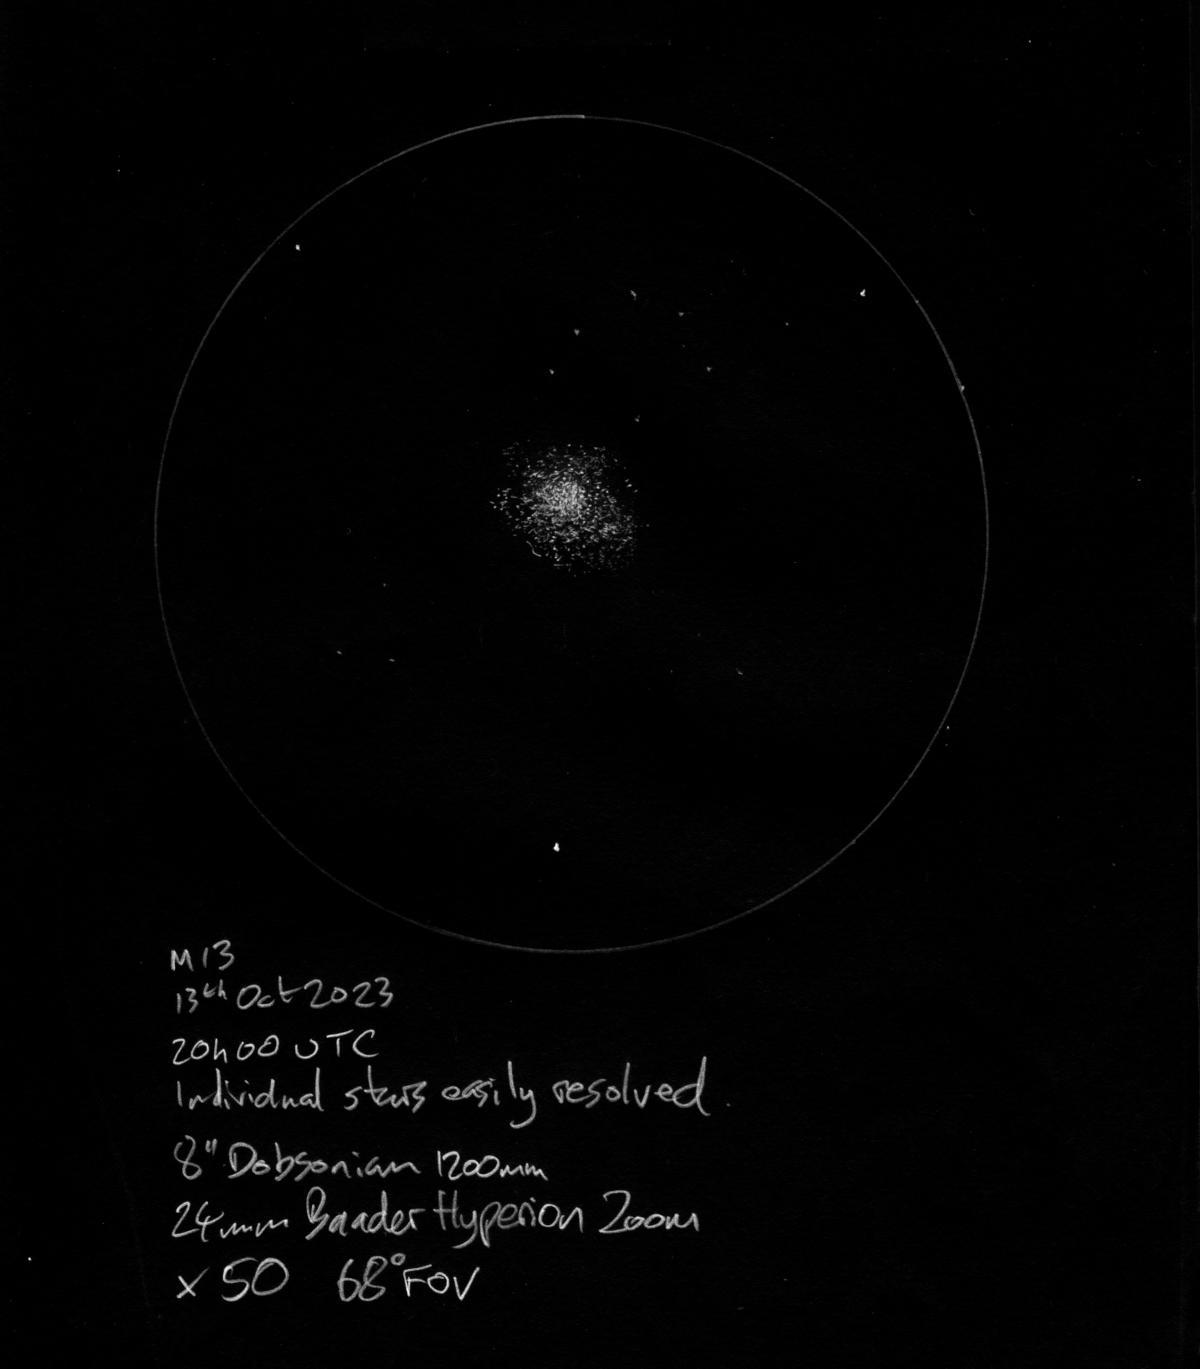 M13
13th Oct 2023
20h00 UTC
Individual stars easily resolved.
8" Dobsonian 1200mm
24mm Baader Hyperion Zoom
x50 68° FOV